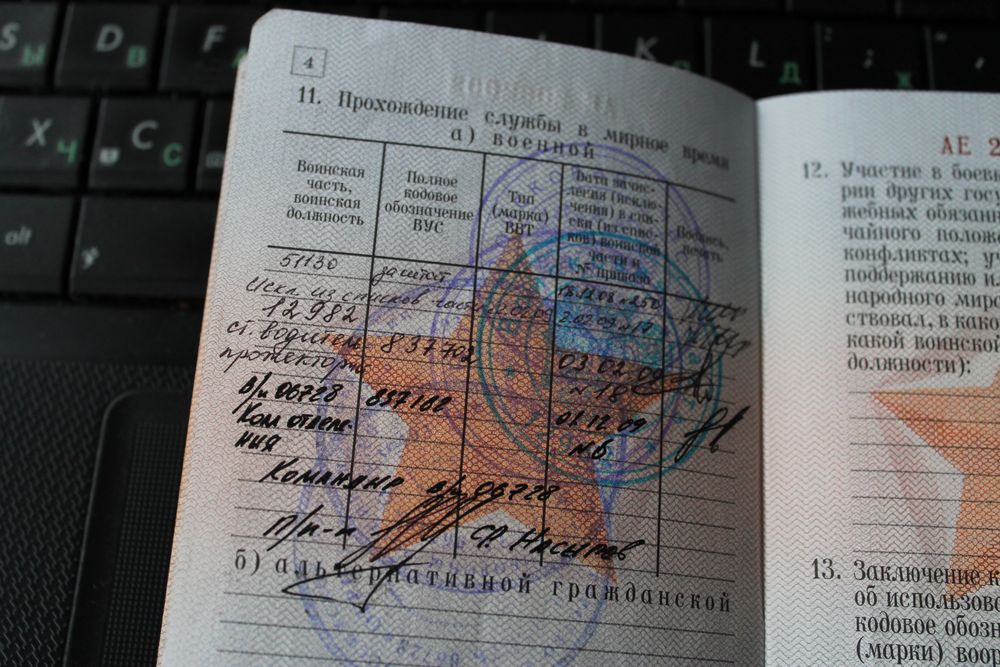 S Ы
D В
F
K
L Д
; ж
X Ч
C С
alt
4
11. Прохождение службы в мирное время
а) военной
Воинская часть, воинская должность
Полное кодовое обозначение ВУС
Тип (марка) ВВТ
Дата зачисления (исключения) в списки (из списков) воинской части и № приказа
Подпись, печать
51130
18.12.08 №250
Искл. из списков
2.02.09 №17
12982
ст. водитель
837702
03.02.09
№18
в/ч 06728 837182
01.12.09
Ком отделе-
ния
№6
Командир в/ч 06728
п/п-к
б) альтернативной гражданской
АЕ 2
12. Участие в боевы
рии других гос
жебных обязан
чайного полож
конфликтах; у
поддержанию и
народного миро
ствовал, в како
какой воинской
должности):
13. Заключение к
об использов
кодовое обозн
(марки) воор